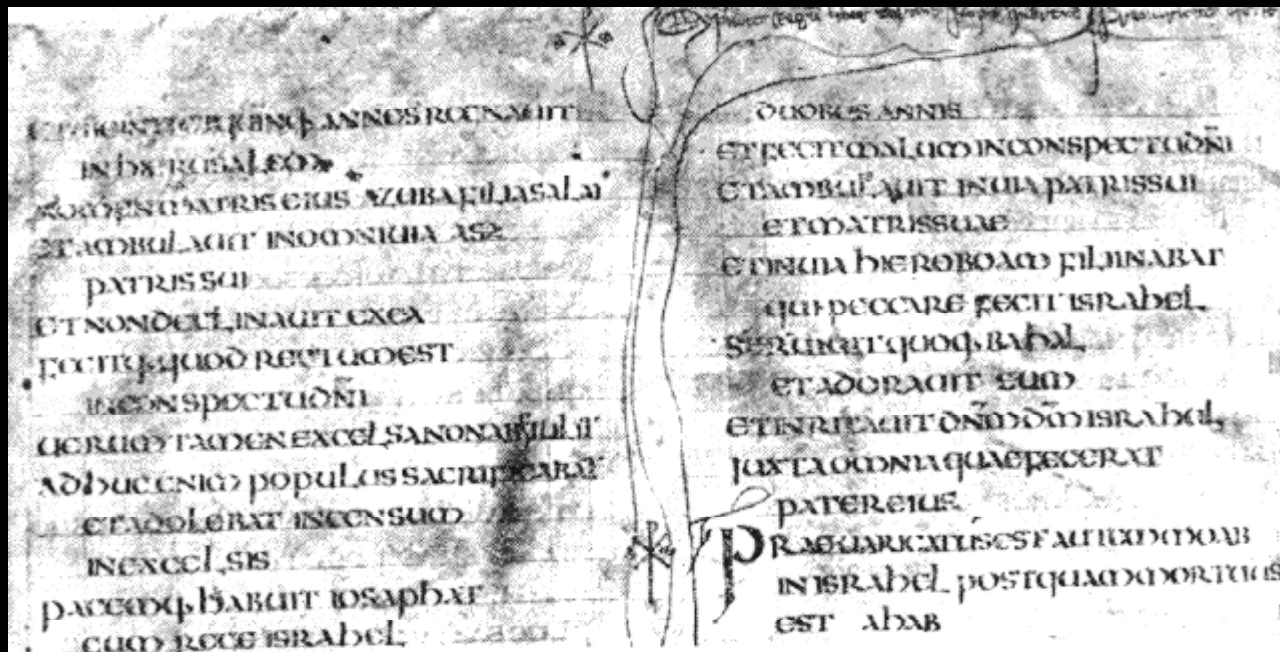 ET VIGINTI QUINQ· ANNOS REGNAUIT
IN HIERUSALEM
NOMEN MATRIS EIUS AZUBA FILIA SALAI
ET AMBULAUIT IN OMNI UIA ASA
PATRIS SUI
ET NON DECLINAUIT EX EA
FECITQ· QUOD RECTUM EST
IN CONSPECTU DN̄I
UERUM TAMEN EXCELSA NON ABSTULIT
ADHUC ENIM POPULUS SACRIFICABAT
ET ADOLEBAT INCENSUM
IN EXCELSIS
PACEMQ· HABUIT IOSAPHAT
CUM REGE ISRAHEL
DUOBUS ANNIS
ET FECIT MALUM IN CONSPECTU DN̄I
ET AMBULAUIT IN UIA PATRIS SUI
ET MATRIS SUAE
ET IN UIA HIEROBOAM FILII NABAT
QUI PECCARE FECIT ISRAHEL
SERUIUIT QUOQ· BAHAL
ET ADORAUIT EUM
ET INRITAUIT DN̄M D̄M ISRAHEL
IUXTA OMNIA QUAE FECERAT
PATER EIUS
PRAEUARICATUS EST AUTEM MOAB
IN ISRAHEL POSTQUAM MORTUUS
EST AHAB